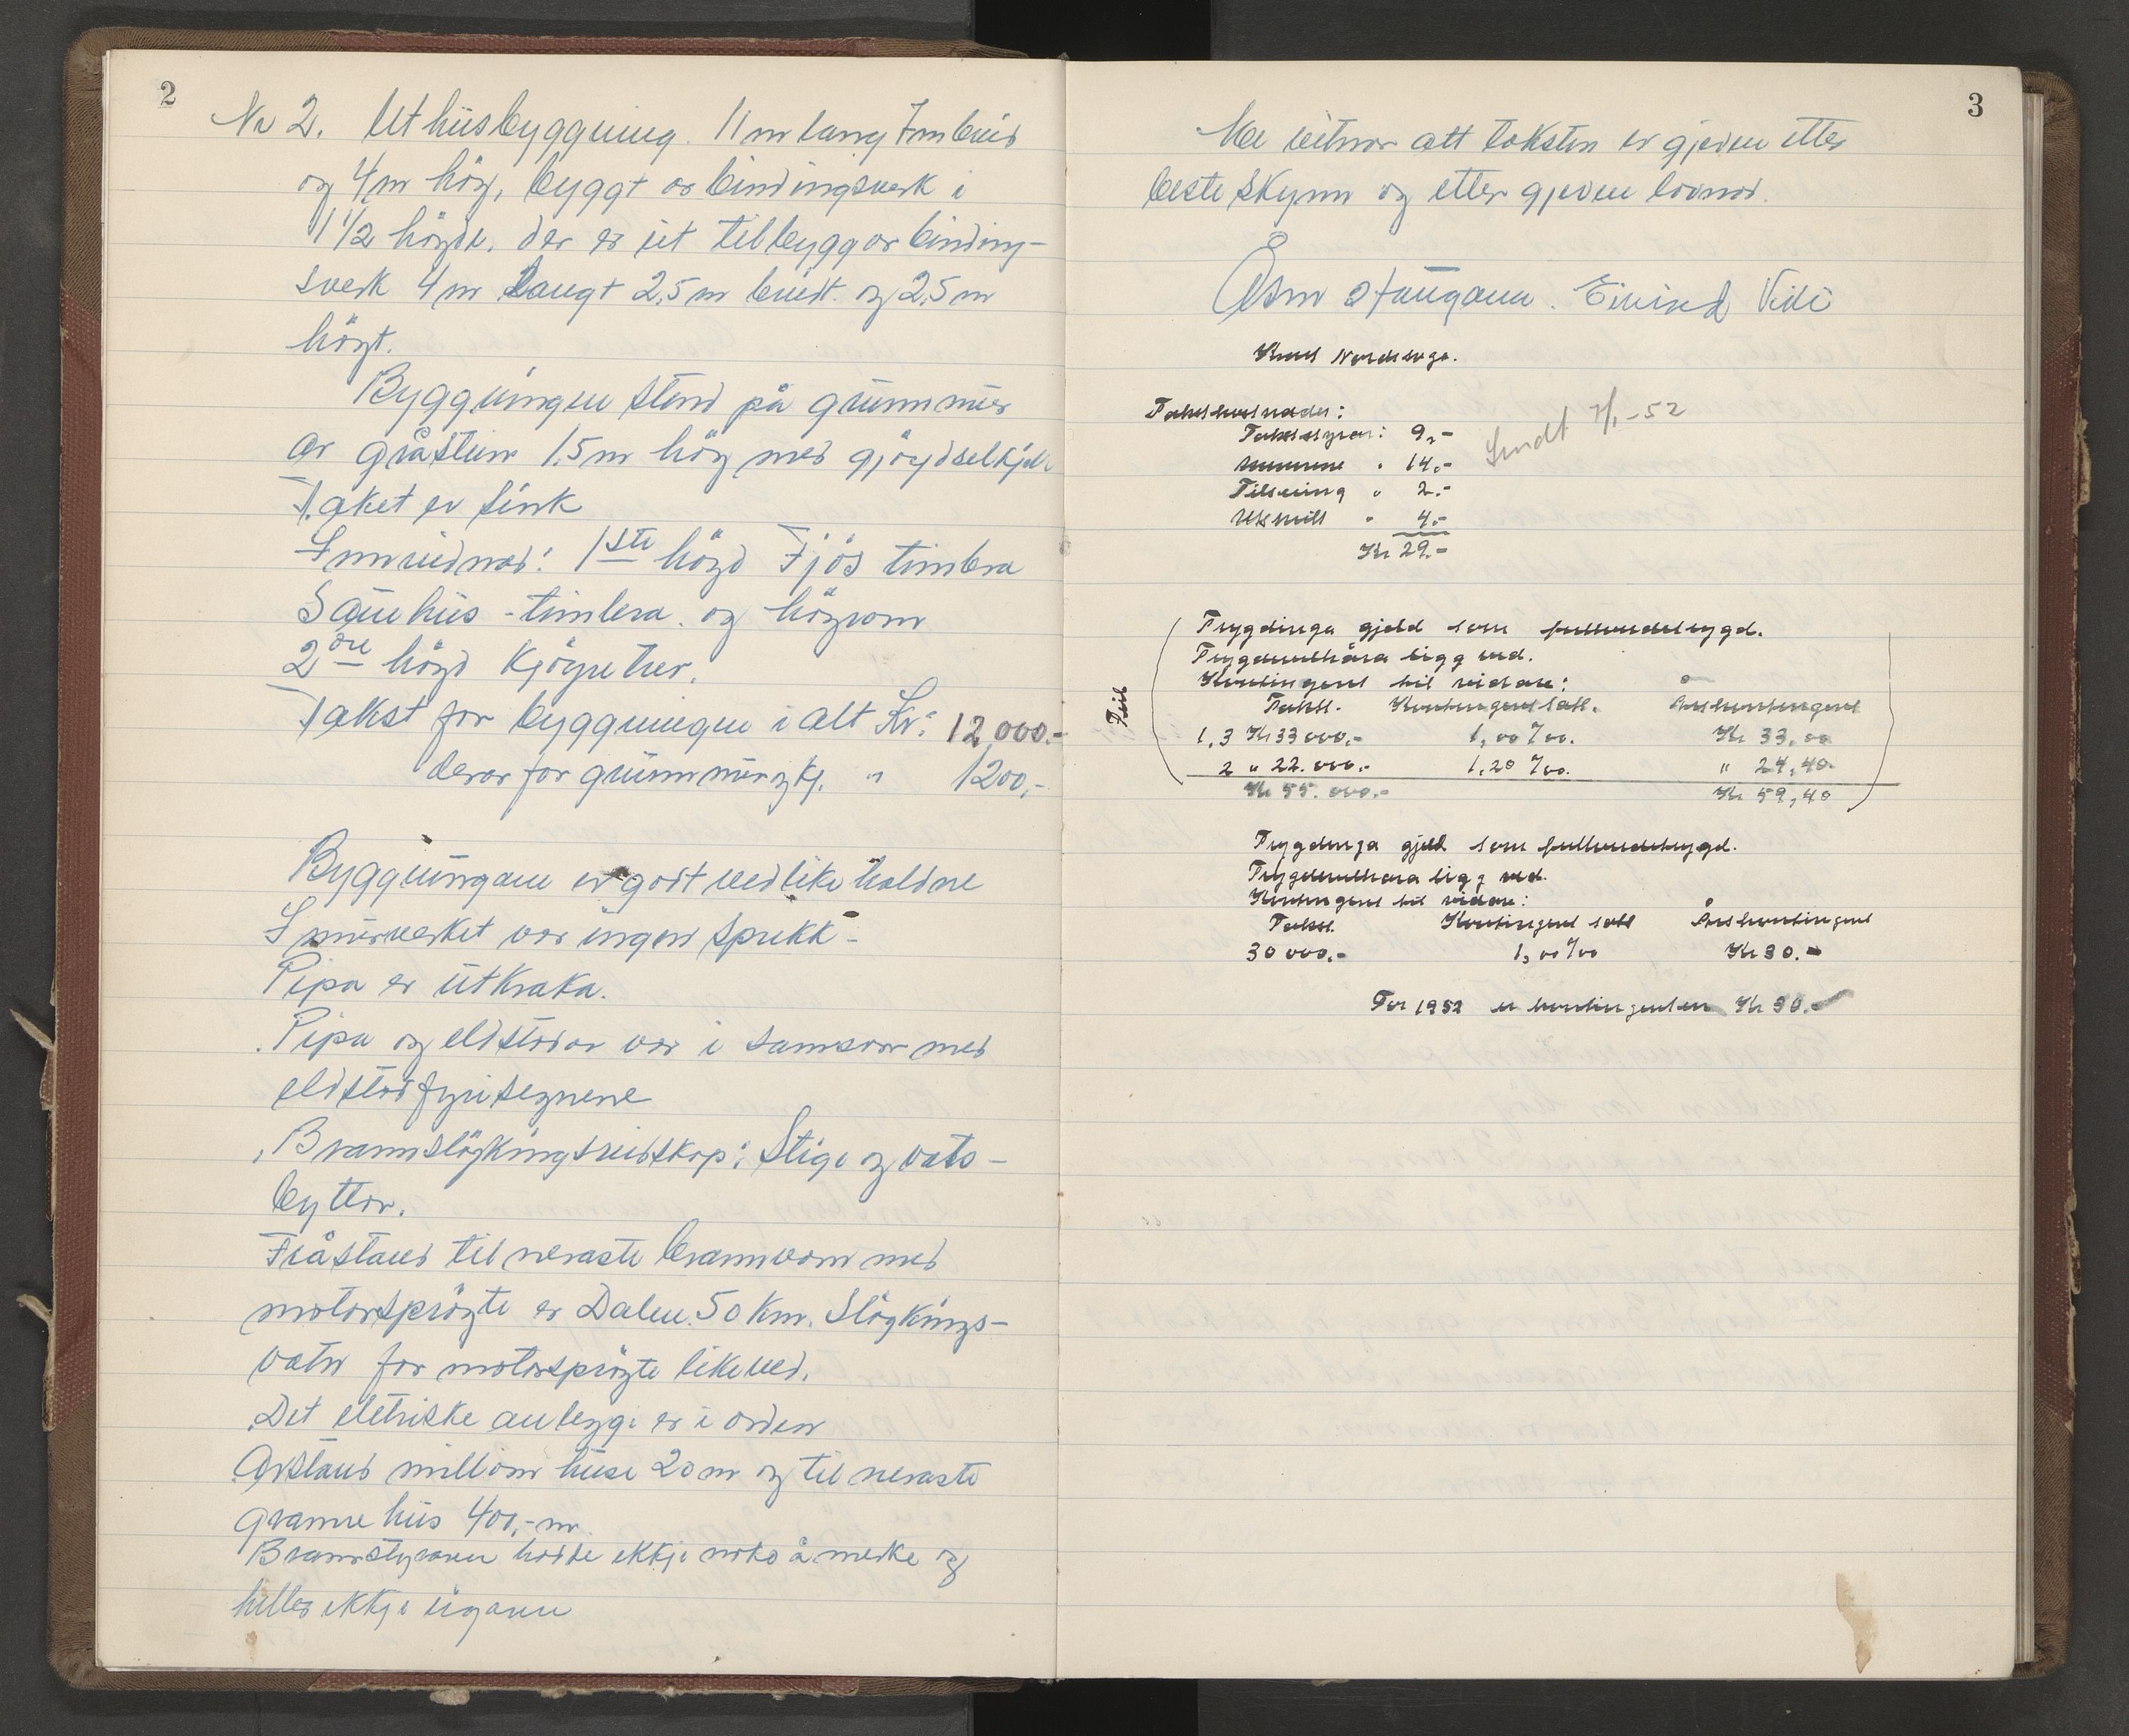 2
Nr 2. Uthusbygguing. 11 m lang 7 m breid
og 4 m høg, byggt av bindingsverk i
1 1/2 høgde. der er eit tilbygg av binding-
sverk 4 m langt 2,5 m breidt. og 2,5 m
högt.
Byggningen stend på grunnmur
av gråstein 1,5 m hög med gjöydselkjel.
Taket er sink
Innreidnad: 1ste högd Fjös timbra
Sauehus - timbra. og höyrom
2are högd Kjöyretrev.
Takst for byggningen i alt Kr: 12,000.-
derav for grunnmur og kj. " 1200,-
Byggningane er godt vedlikehaldne
I murverket var ingen sprekk-
Pipa er utkraka.
Pipa og eldstadar var i samsvar med
eldstadfyresegnene
Brannslöykingsreidskap: Stige og vats-
byttor.
Fråstand til neraste brannvarn med
motorspröyte er Dalen. 50 Km. Slöykings-
vatn for motorspröyte likeved.
Det eletriske anlegge er i orden
Avstand millom husa 20 m og til neraste
granne hus 400,- m.
Brannstyraren hadde ikkje noko å merke og
heller ikkje eigaren
3
Me vitnar att taksten er gjeven etter
beste skynn og etter gjeven lovnad.
Åsm Haugann. Eivind Vidi
Knut Nordstoga.
Takstkostnader:
Takststyrar: 9,-
mennene " 14,-
Tilsening " 2.-
Utskrift " 4.-
Kr 29.-
Sendt 7/1-52
Feil
Trygdinga gjeld som fullverdetrygd.
Trygdevilkåra ligg ved.
Kontingent til vidare:
Takst. Kontingentsats. Årskontingent
1,3 Kr 33 000.- 1,00 ‰. Kr 33,00
2 " 22.000.- 1,20 ‰. " 24,40-
Kr 55.000.- Kr 59,40
Trygdinga gjeld som fullverdetrygd.
Trygdevilkåra ligg ved.
Kontingent til vidare:
Takst. Kontingent sats Årskontingent
30 000.- 1,00 ‰ Kr 30.-
For 1952 er kontingenten Kr 30.-